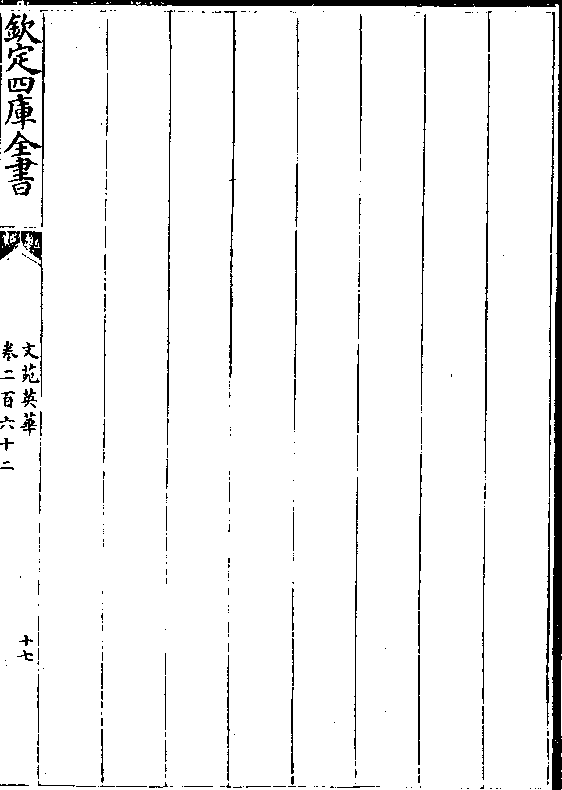 欽定四庫全書
文苑英華
卷二百六十二
十七